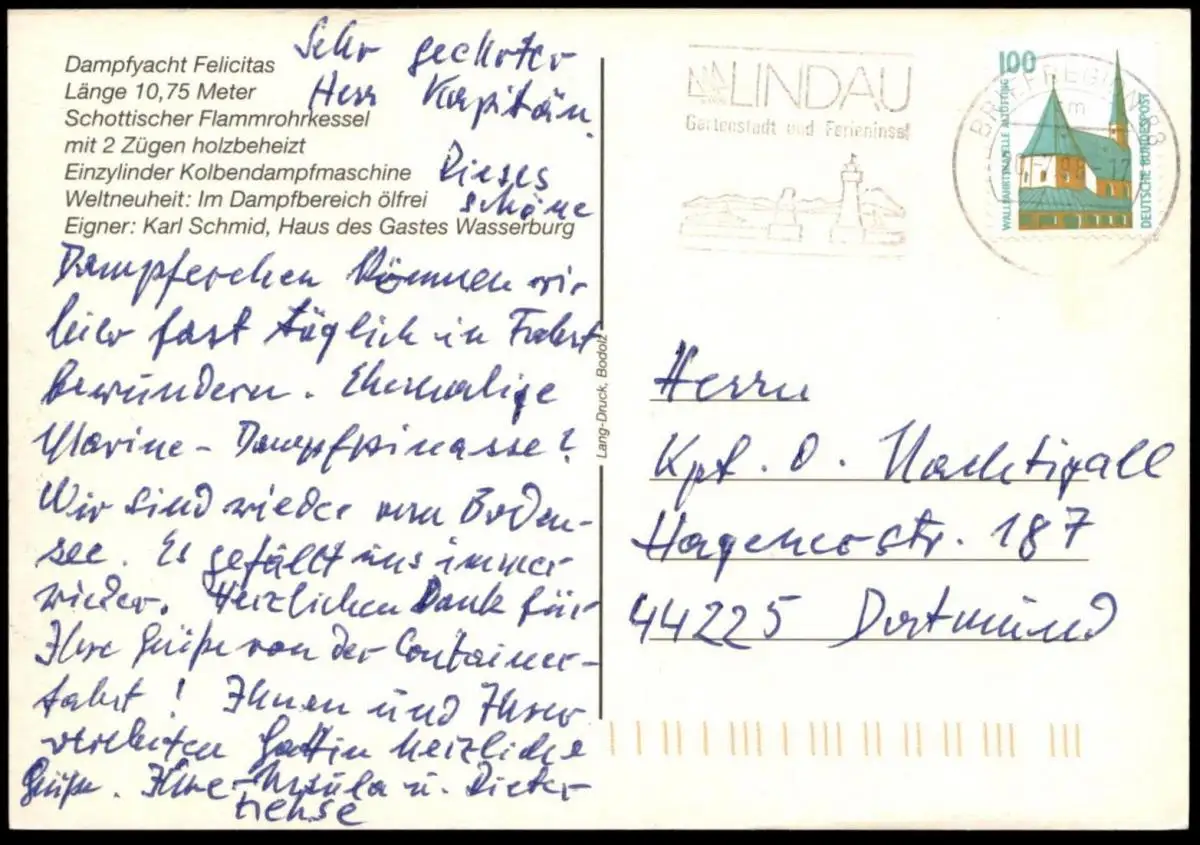 Dampfyacht Felicitas
Länge 10,75 Meter
Schottischer Flammrohrkessel
mit 2 Zügen holzbeheizt
Einzylinder Kolbendampfmaschine
Weltneuheit: Im Dampfbereich ölfrei
Eigner: Karl Schmid, Haus des Gastes Wasserburg
Sehr geehrter
Herr Kapitän.
Dieses
schöne
Dampferchen können wir
hier fast täglich in Fahrt
bewundern. Ehemalige
Marine-Dampfpinasse?
Wir sind wieder vom Boden-
see. Es gefällt uns immer
wieder. Herzlichen Dank für
Ihre Grüße von der Container-
fahrt! Ihnen und Ihrer
verehrten Gattin herzliche
Grüße. Ihre Ursula u. Dieter
Lang-Druck, Bodolz
LINDAU
Gartenstadt und Ferieninsel
100
WALLFAHRTSKAPELLE ALTÖTTING
DEUTSCHE BUNDESPOST
BRIEFREGION 88
Herrn
Kpt. O. Nachtigall
Hagenerstr. 187
44225 Dortmund